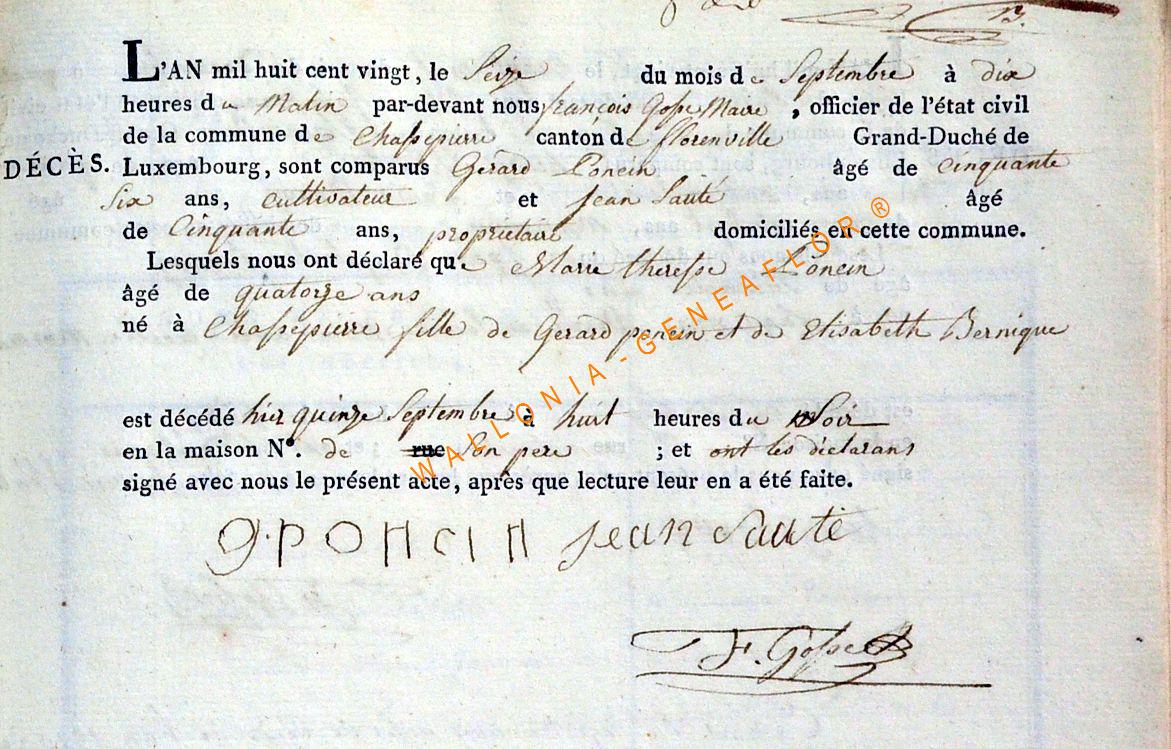 B.
L'AN mil huit cent vingt, le Seize du mois de Septembre à dix
heures du Matin par-devant nous françois Gosse Maire, officier de l'état civil
de la commune de Chassepierre canton de florenville Grand-Duché de
DÉCÈS. Luxembourg, sont comparus Gerard Poncin âgé de cinquante
Six ans, cultivateur et Jean Sauté âgé
de Cinquante ans, proprietaire domiciliés en cette commune.
Lesquels nous ont déclaré que Marie theresse Poncin
âgé de quatorze ans
né à Chassepierre fille de Gerard poncin et de Elisabeth Bernique
est décédé hier quinze Septembre à huit heures du Soir
en la maison N°. de rue Son pere ; et ont les déclarans
signé avec nous le présent acte, après que lecture leur en a été faite.
WALLONIA-GENEAFLOR®
g.poncin jean Sauté
F. Gosse